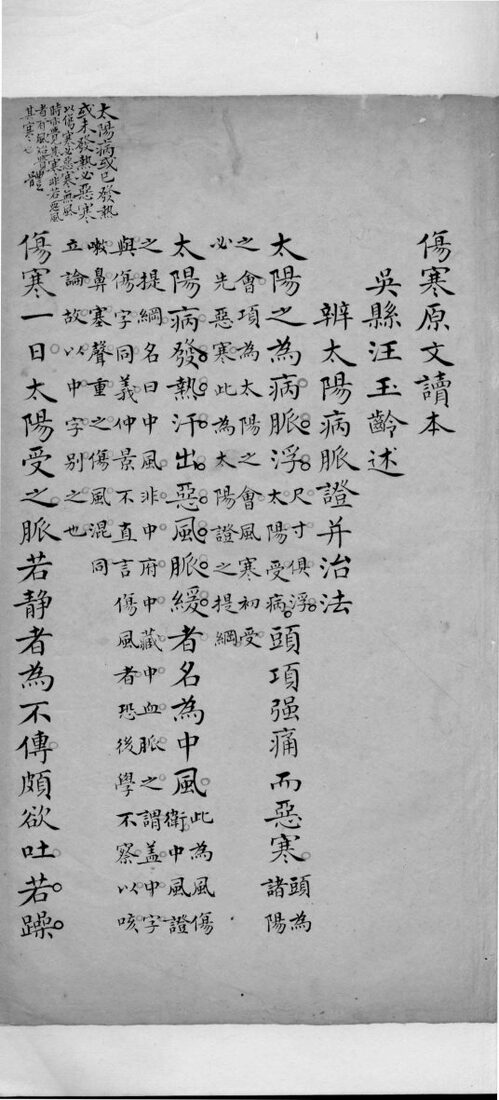 傷寒原文讀本
吳縣汪玉齡述
辨太陽病脈證并治法
太陽之為病脈浮尺寸俱浮太陽受病頭項强痛而惡寒頭為諸陽
之會項為太陽之會風寒初受
必先惡寒此為太陽證之提綱
太陽病發熱汗出惡風脈緩者名為中風此為風傷衛中風證
之提綱名曰中風非中府中藏中血脈之謂盖中字
與傷字同義仲景不直言傷風者恐後學不察以咳
嗽鼻塞聲重之傷風混同
立論故以中字別之也
傷寒一日太陽受之脈若静者為不傳頗欲吐若躁
太陽病或已發熱
或未發熱必惡寒
以傷寒必惡寒無風
時亦覺其寒非若惡風
者有風始覺體
其寒也